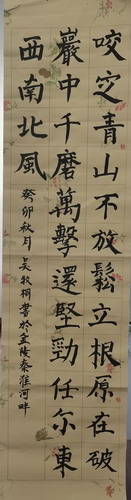 咬定青山不放鬆立根原在破
巖中千磨萬擊還堅勁任尔東
西南北風
癸卯秋月吴牧書於金陵秦淮河畔